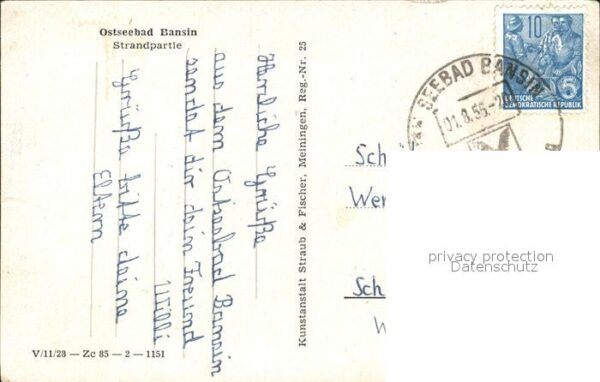 Ostseebad Bansin
Strandpartie
Herzliche Grüße
aus dem Ostseebad Bansin
sendet dir dein Freund
Willi
Grüße bitte deine
Eltern
V/11/28 — Zc 85 — 2 — 1151
Kunstanstalt Straub & Fischer, Meiningen, Reg.-Nr. 25
SEEBAD BANSIN
01.8.56.-2
10
5
DEUTSCHE
DEMOKRATISCHE REPUBLIK
Sch
Wer
Sch
W
privacy protection
Datenschutz